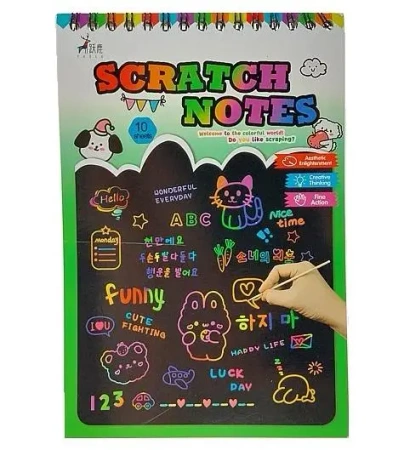 跃鹿
SCRATCH
NOTES
10
sheets
Welcome to the colorful world!
Do you like scraping?
Aesthetic
Enlightenment
Creative
Thinking
Fine
Action
Hello
WONDERFUL
EVERYDAY
ABC
Nice
time
monday
천만에요
행운을 빌어요
funny
하지 마
I U
CUTE
FIGHTING
HAPPY LIFE
LUCK
DAY
zzz
123